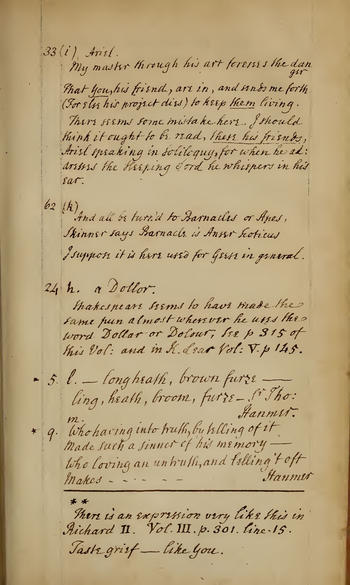 33 (i) Ariel.
My master through his art foresees the dan
ger
That you, his friend, are in, and sends me forth
(For else his project dies) to keep them living.
There seems some mistake here. I should
think it ought to be read, these his friends,
Ariel speaking in soliloquy, for when he ad:
dresses the sleeping Lord he whispers in his
ear.
62 (k)
And all be turn'd to Barnacles or Apes,
Skinner says Barnacle is Anser Scoticus
I suppose it is here used for Geese in general.
24 h. a Dollor.
Shakespeare seems to have made the
same pun almost wherever he uses the
word Dollar or Dolour, See p 315 of
this Vol: and in K. Lear Vol: V. p 145.
5. l. — long heath, brown furze —
ling, heath, broom, furze — Sr. Tho:
Hanmer.
m.
* 9. Who having into truth, by telling of it
Made such a sinner of his memory —
Who loving an untruth, and telling't oft
Makes - - - - - Hanmer
* *
There is an expression very like this in
Richard II. Vol. III. p. 301. line-15.
Taste grief — like you.